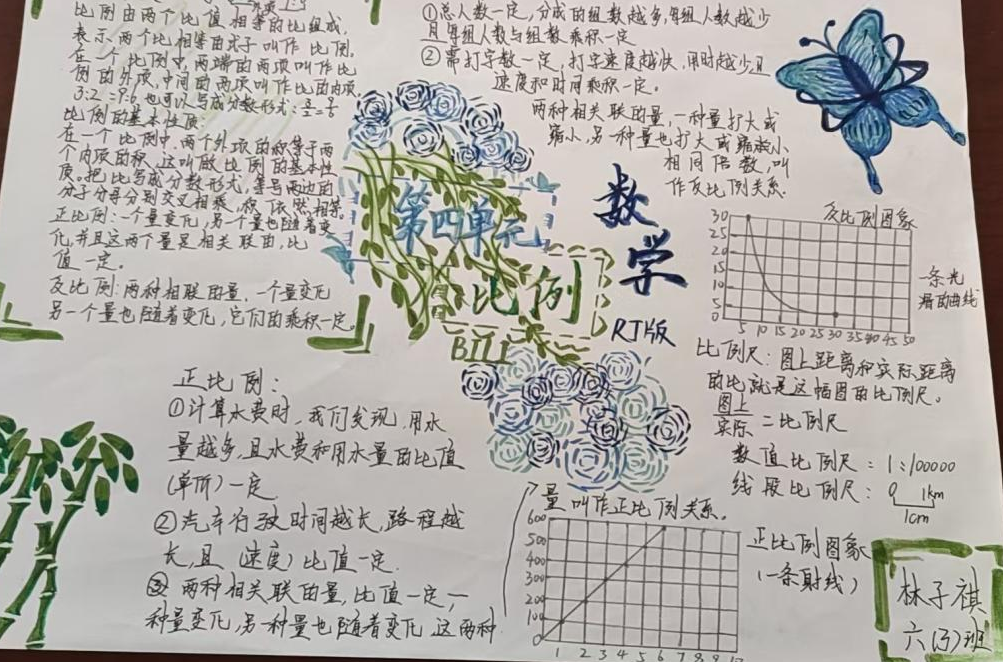 比例由两个比值相等的比组成,
表示两个比相等的式子叫作比例.
在一个比例中,两端的两项叫作比
例的外项,中间的两项叫作比的内项.
3:2=9:6也可以写成分数形式:
比例的基本性质:
在一个比例中,两个外项的积等于两
个内项的积,这叫做比例的基本性
质。把比写成分数形式,等号两边的
分子分母分别交叉相乘,积依然相等。
正比例:一个量变化,另一个量也随着变
化,并且这两个量是相关联的,比
值一定。
反比例:两种相联的量,一个量变化
另一个量也随着变化,它们的乘积一定。
①总人数一定,分成的组数越多,每组人数越少
且每组人数与组数乘积一定
②需打字数一定,打字速度越快,用时越少且
速度和时间乘积一定。
两种相关联的量,一种量扩大或
缩小,另一种量也扩大或缩小
相同倍数,叫
作反比例关系.
第四单元
比例
BILI
数学
RJ版
反比例图象
30
25
20
15
10
5
0
5 10 15 20 25 30 35 40 45 50
一条光
滑的曲线
比例尺:图上距离和实际距离
的比就是这幅图的比例尺。
图上
实际 = 比例尺
数值比例尺:1:100000
线段比例尺:0 1km
1cm
正比例:
①计算水费时,我们发现,用水
量越多,且水费和用水量的比值
(单价)一定
②汽车行驶时间越长,路程越
长,且(速度)比值一定.
③两种相关联的量,比值一定,一
种量变化,另一种量也随着变化,这两种
量叫作正比例关系.
600
500
400
300
200
100
0
1 2 3 4 5 6 7 8 9 10
正比例图象
(一条射线)
林子祺
六(3)班